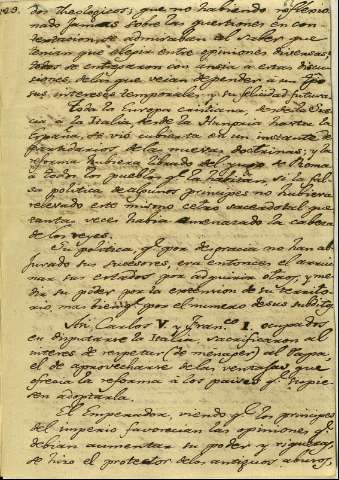 123.
dos theologicos; que no habiendo reflexio-
nado jamas sobre las questiones en con-
tendacion, se admiraban al saber que
tenian que elegir entre opiniones diversas;
todos se entregaron con ansia á estas discu-
siones, de las que veian depender á un tpo
sus intereses temporales, y su felicidad futura.
Toda la Europa cristiana, desde la Suecia
cia á la Italia, desde la Hungria hasta la
España, se vió cubierta en un instante de
partidarios de las nuevas doctrinas; y la
reforma hubiera librado del yugo de Roma
á todos los pueblos qe la habitan, si la fal-
sa politica de algunos principes no hubiera
relevado este mismo cetro sacerdotal que
tantas veces habia amenazado la cabeza
de los reyes.
Su politica, qe por desgracia no han ab-
jurado sus sucesores, era entonces el arrui-
nar sus estados por adquirir otros, y me-
dir su poder por la extension de su territo-
rio, mas bien qe por el numero de sus subditos.
Asi, Carlos V. y Franco I. ocupados
en disputarse la Italia, sacrificaron al
interes de respetar (de menager) al Papa,
el de aprovecharse de las ventajas que
ofrecia la reforma á los paises qe supie-
sen adoptarla.
El Emperador, viendo qe los principes
del imperio favorecian las opiniones qe
debian aumentar su poder y riquezas,
se hizo el protector de los antiguos abusos,